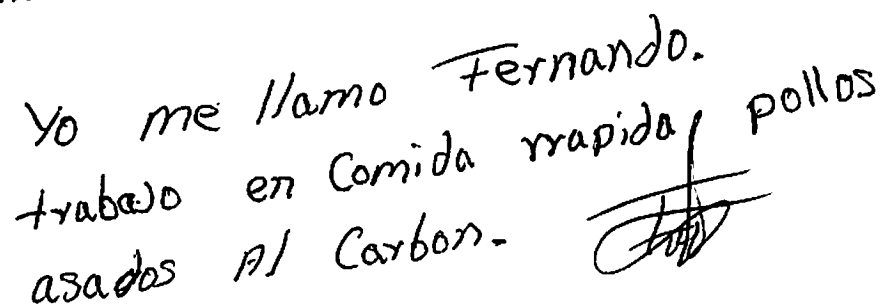 Yo me llamo Fernando.
trabajo en Comida rrapida, pollos
asados Al Carbon.